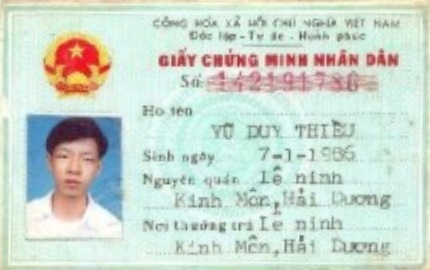 CỘNG HÒA XÃ HỘI CHỦ NGHĨA VIỆT NAM
Độc lập - Tự do - Hạnh phúc
GIẤY CHỨNG MINH NHÂN DÂN
Số 142191786
Họ tên
VŨ DUY THIỀU
Sinh ngày 7-1-1986
Nguyên quán Lê ninh
Kinh Môn, Hải Dương
Nơi thường trú Lê ninh
Kinh Môn, Hải Dương